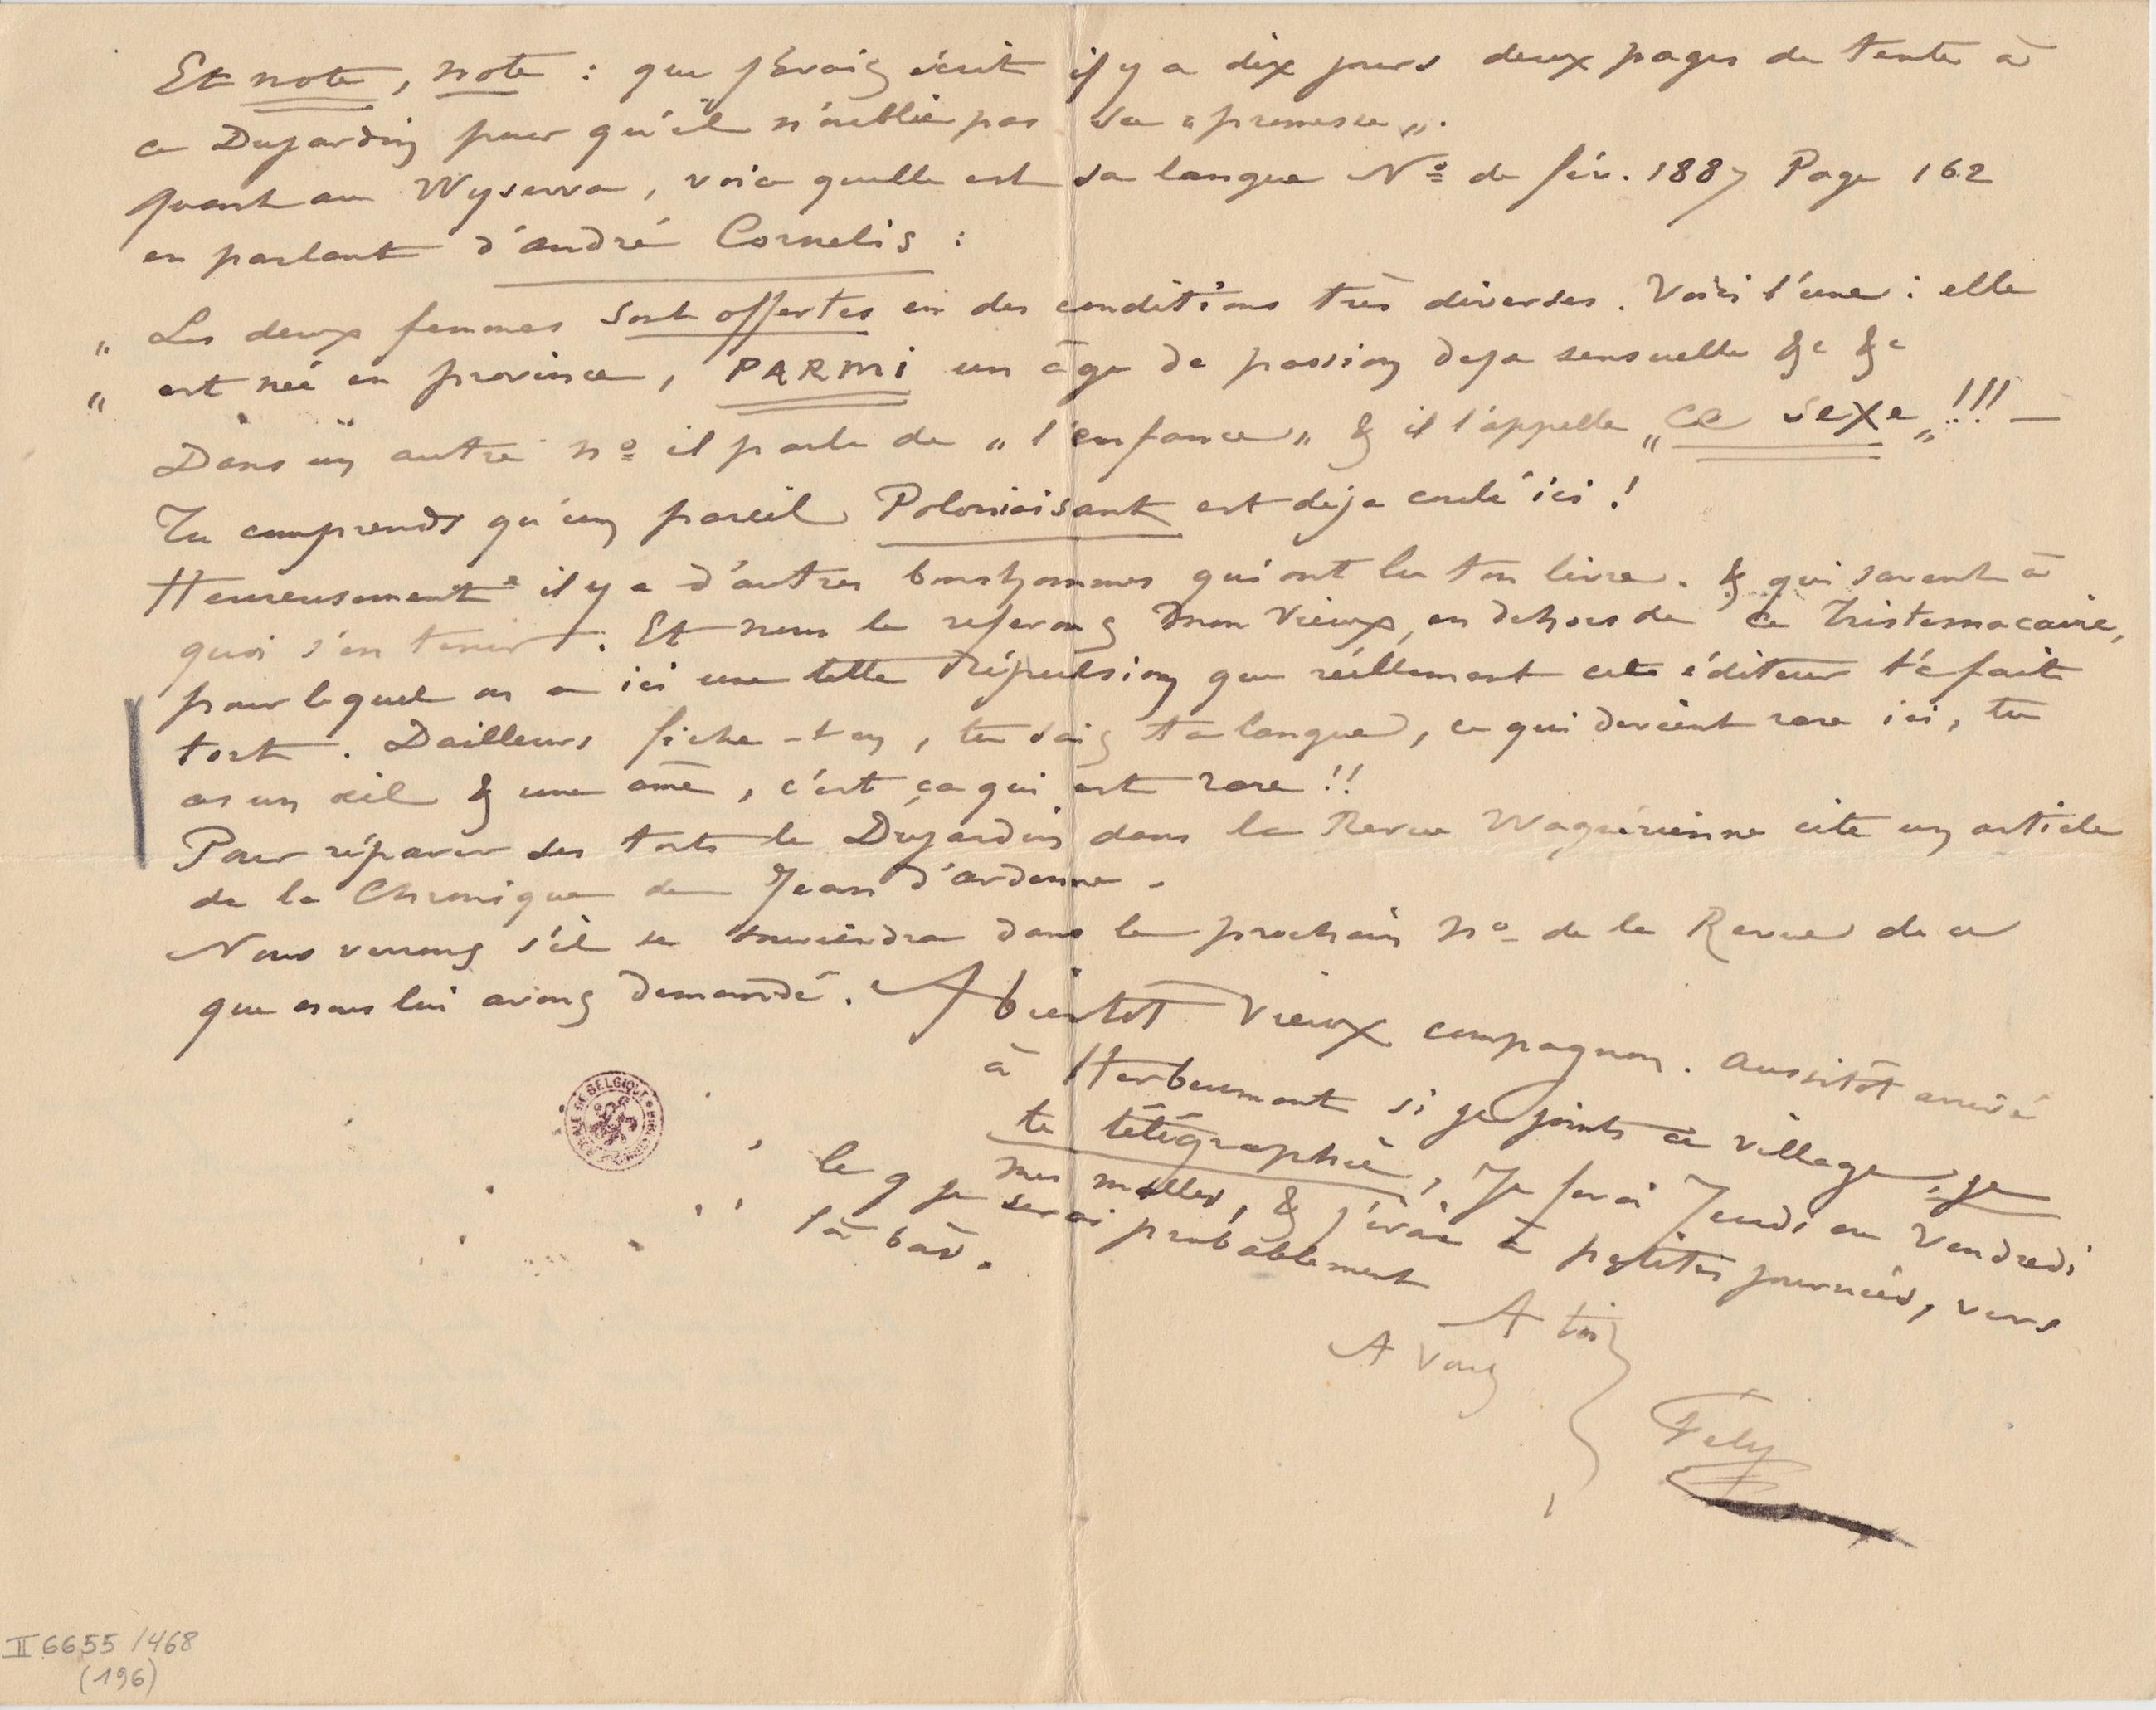 Et note, note : que j'avais écrit il y a dix jours deux pages de texte à
ce Dujardin pour qu'il n'oublie pas sa „promesse„.
Quant au Wyserva, voici quelle est sa langue Nº de fév. 1887 Page 162
en parlant d'André Cornelis :
„ Les deux femmes sont offertes en des conditions très diverses. Voici l'une : elle
„ est née en province, PARMI un âge de passion deja sensuelle &c &c
Dans un autre nº il parle de „l'enfance„ & il l'appelle „ce sexe„!!! —
Tu comprends qu'un pareil Polonisant est déja coulé ici !
Heureusement il y a d'autres bonshommes qui ont lu ton livre. & qui savent à
quoi s'en tenir. Et nous le referons mon Vieux, en dehors de ce Tristemacaire,
pour lequel on a ici une telle répulsion que réellement cet éditeur t'a fait
tort. Dailleurs fiche-t'en, tu sais ta langue, ce qui devient rare ici, tu
as un œil & une âme, c'est ça qui est rare !!
Pour réparer ses torts le Dujardin dans la Revue Wagnérienne cite un article
de la Chronique de Jean d'ardenne.
Nous verrons s'il se souviendra dans le prochain nº de la Revue de ce
que nous lui avons demandé. A bientot Vieux compagnon. Aussitôt arrivé
à Herbeumont si je joints ce village, je
te télégraphie, Je ferai Jeudi ou Vendredi
mes malles, & j'irai à petites journées, vers
le 9 je serai probablement
là bas.
A toi
A Vous
Fély
BELGIQUE
II 6655 /468
(196)